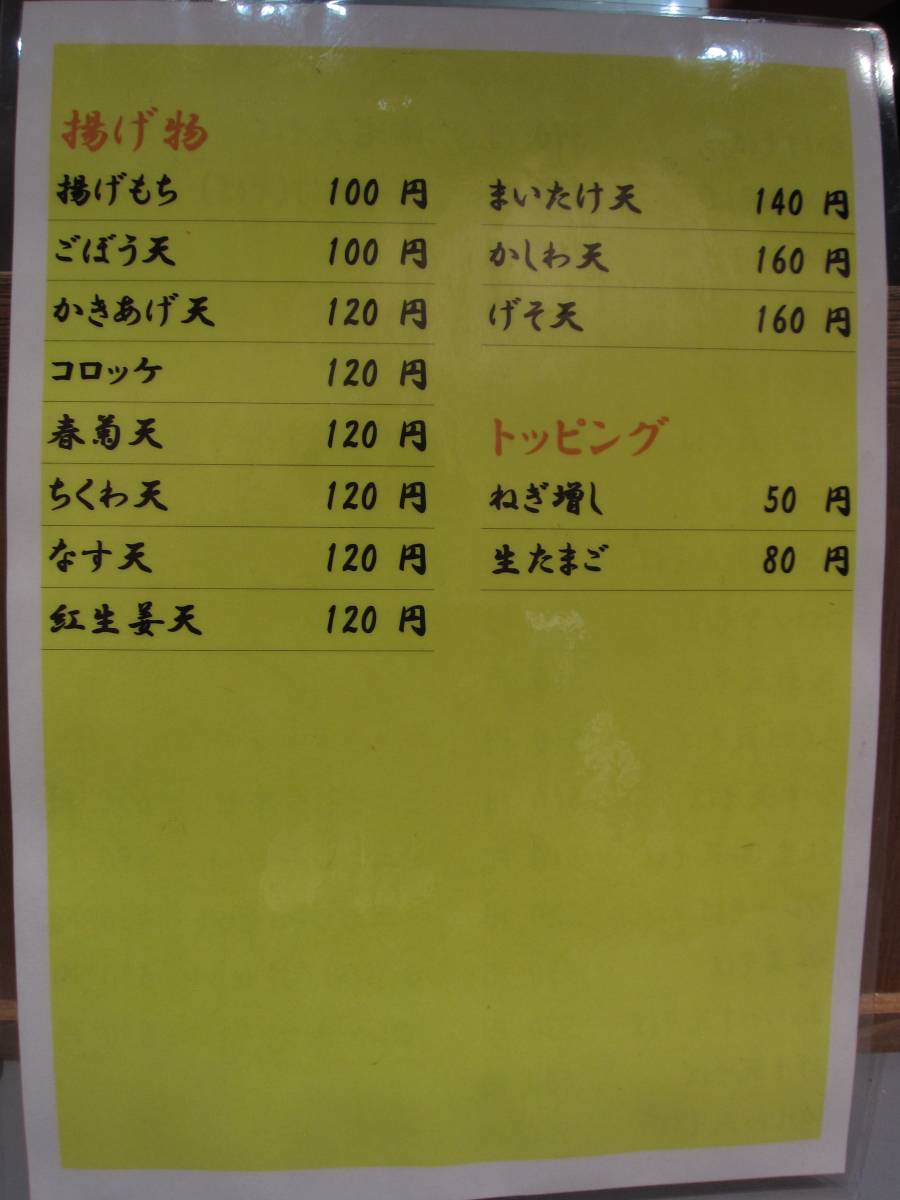 揚げ物
揚げもち 100 円
ごぼう天 100 円
かきあげ天 120 円
コロッケ 120 円
春菊天 120 円
ちくわ天 120 円
なす天 120 円
紅生姜天 120 円
まいたけ天 140 円
かしわ天 160 円
げそ天 160 円
トッピング
ねぎ増し 50 円
生たまご 80 円